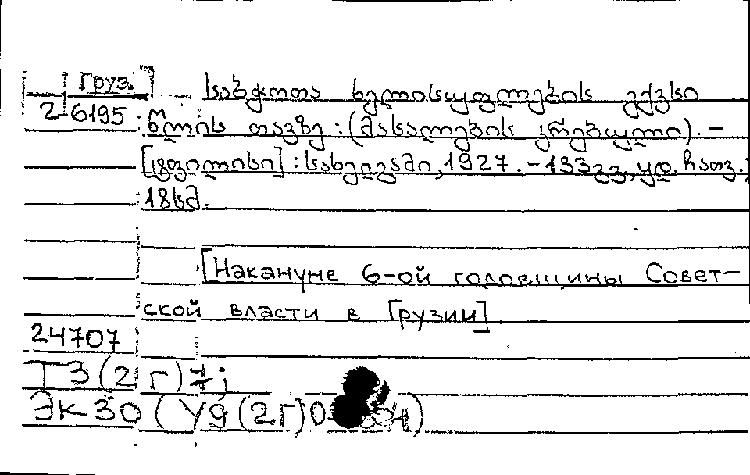 Груз.
2-6195
საბჭოთა ხელისუფლების ექვსი
წლის თავზე : (მასალების კრებული). -
[ტფილისი] : სახელგამი, 1927. - 133 გვ., ყდ. ჩათვ.,
18 სმ.
[Накануне 6-ой годовщины Совет-
ской власти в Грузии]
24707
ТЗ(2г)7;
ЭКЗО (У9(2Г)0